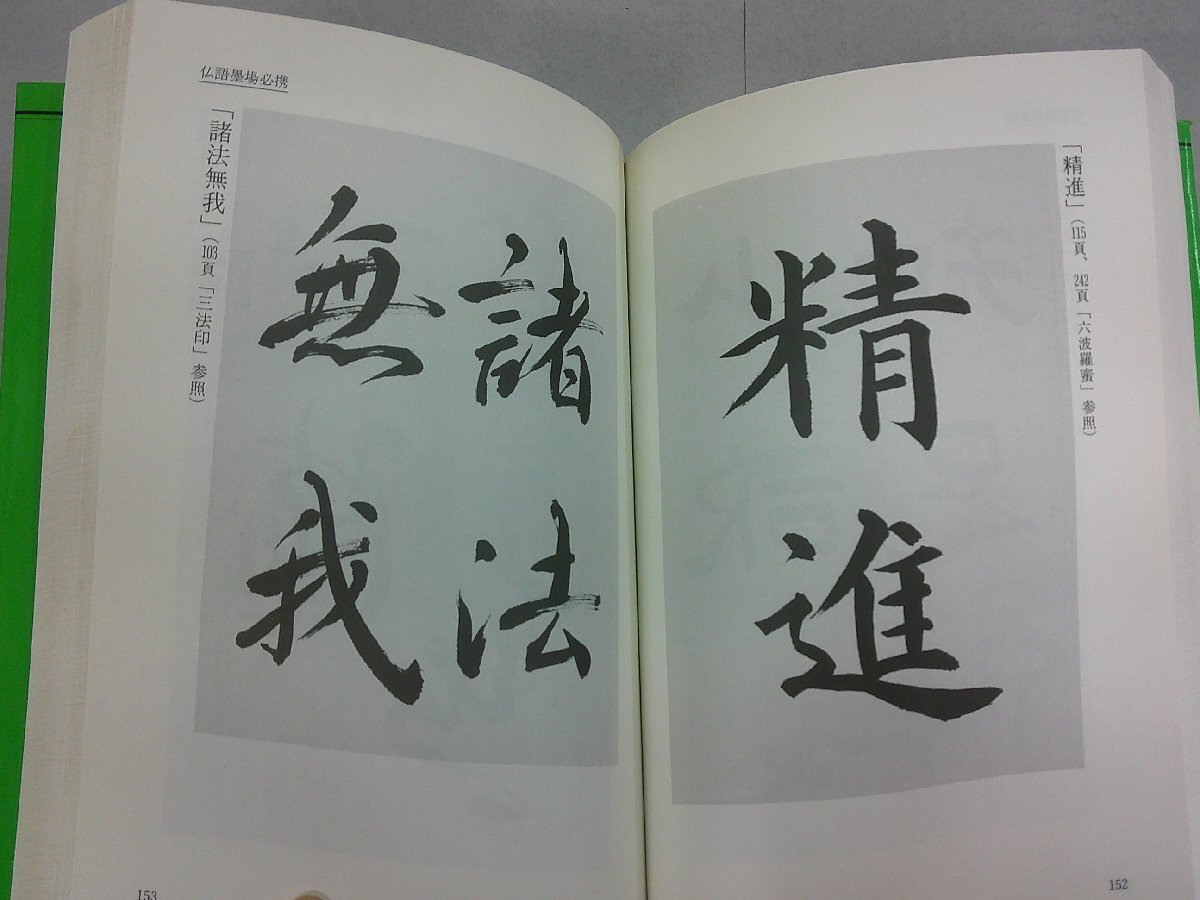 「精進」（115頁、242頁「六波羅蜜」参照）
精進
152
仏語墨場必携
諸法
無我
「諸法無我」（103頁「三法印」参照）
153